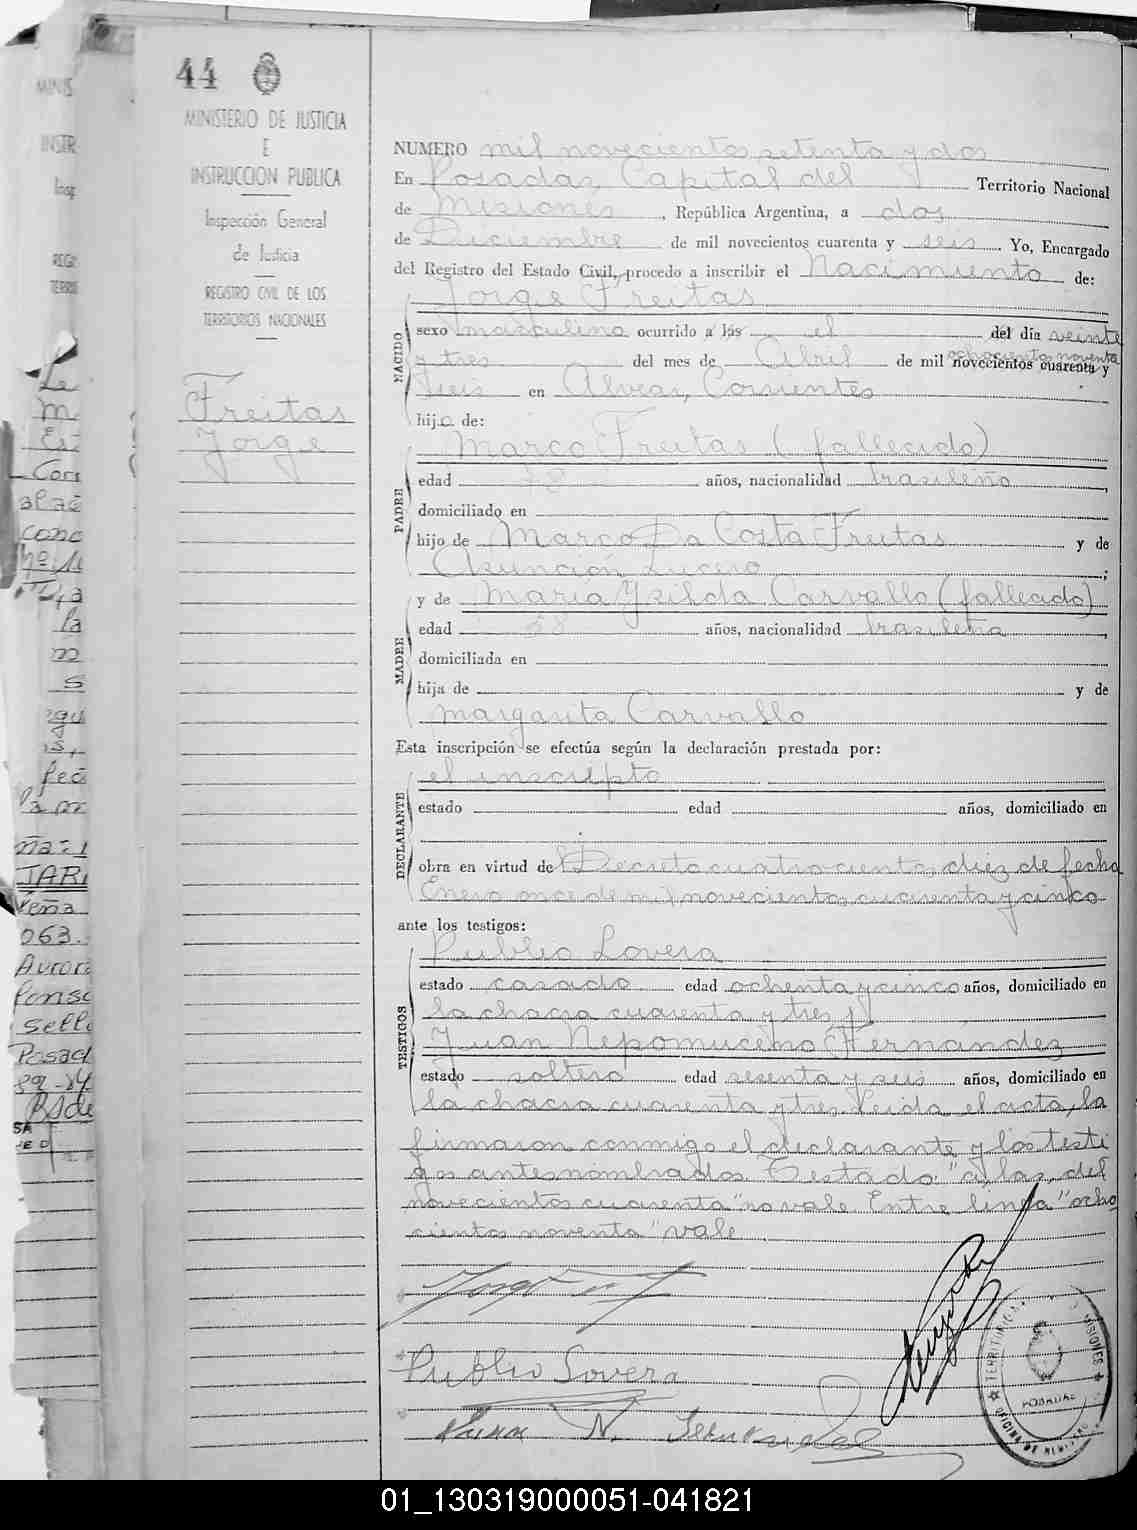 44
MINISTERIO DE JUSTICIA
E
INSTRUCCION PUBLICA
Inspección General
de Justicia
REGISTRO CIVIL DE LOS
TERRITORIOS NACIONALES
Freitas
Jorge
NUMERO mil novecientos setenta y dos
En Posadas, Capital del Territorio Nacional
de Misiones, República Argentina, a dos
de Diciembre de mil novecientos cuarenta y seis. Yo, Encargado
del Registro del Estado Civil, procedo a inscribir el Nacimiento de:
Jorge Freitas
NACIDO
sexo masculino ocurrido a las el del día veinte
ochocientos noventa
y tres del mes de Abril de mil novecientos cuarenta y
seis en Alvear, Corrientes
hijo de:
Marco Freitas (fallecido)
PADRE
edad 78 años, nacionalidad brasileño
domiciliado en
hijo de Marco Da Costa Freitas y de
Asunción Lucero;
y de Maria Ysilda Carvallo (fallecido)
MADRE
edad 58 años, nacionalidad brasileña
domiciliada en
hija de y de
Margarita Carvallo
Esta inscripción se efectúa según la declaración prestada por:
el inscripto
DECLARANTE
estado edad años, domiciliado en
obra en virtud del Decreto cuatrociento diez de fecha
Enero once de mil novecientos cuarenta y cinco
ante los testigos:
Publio Lovera
TESTIGOS
estado casado edad ochenta y cinco años, domiciliado en
la chacra cuarenta y tres y
Juan Nepomuceno Fernández
estado soltero edad sesenta y seis años, domiciliado en
la chacra cuarenta y tres. Leida el acta, la
firmaron conmigo el declarante y los testi
gos antesnombrados. Testado: "a, las, del
novecientos cuarenta" no vale. Entre linea "ocho
cientos noventa" vale
Jorge
Publio Lovera
Juan N. Fernandez
TERRITORIO MISIONES
POSADAS
OFICINA DE REGISTRO
01_130319000051-041821